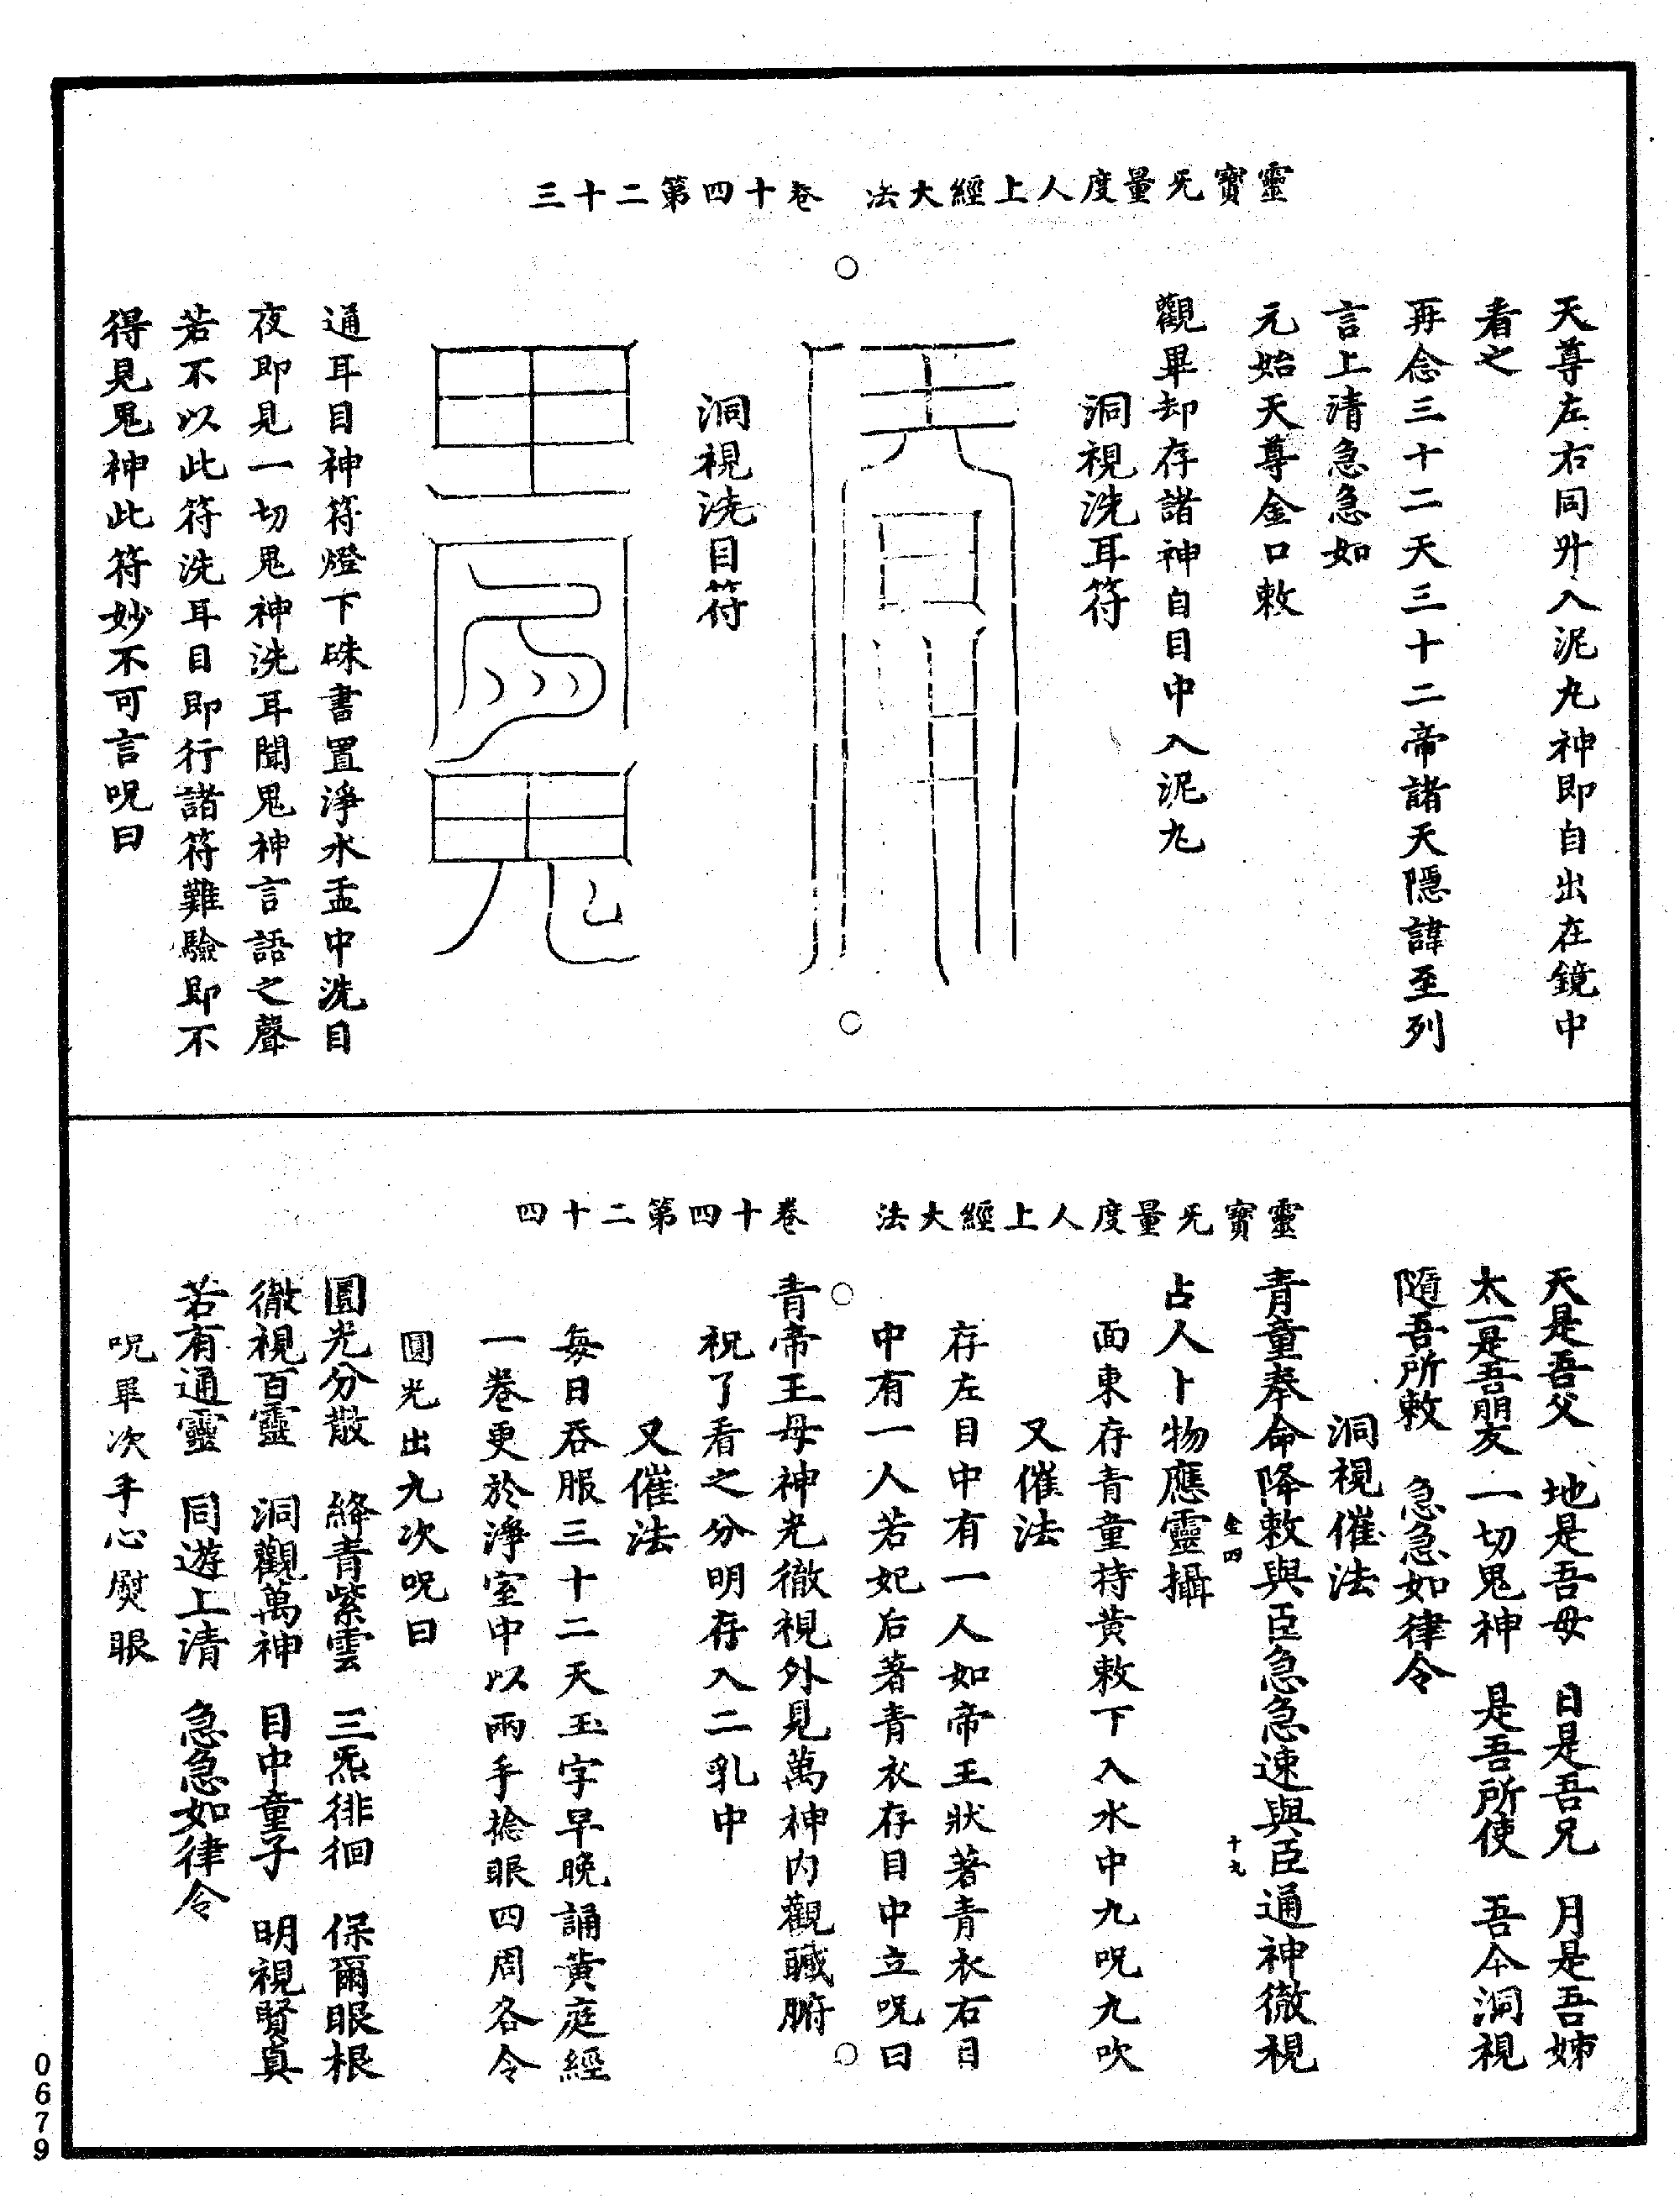 靈寶无量度人上經大法　卷十四第二十三
天尊左右同升入泥丸神即自出在鏡中
看之
再念三十二天三十二帝諸天隱諱至列
言上清急急如
元始天尊金口敕
觀畢却存諸神自目中入泥丸
洞視洗耳符
洞視洗目符
通耳目神符燈下硃書置淨水盂中洗目
夜即見一切鬼神洗耳聞鬼神言語之聲
若不以此符洗耳目即行諸符難驗即不
得見鬼神此符妙不可言呪曰
靈寶无量度人上經大法　卷十四第二十四
天是吾父　地是吾母　日是吾兄　月是吾姊
太一是吾朋友　一切鬼神　是吾所使　吾今洞視
隨吾所敕　急急如律令
洞視催法
青童奉命降敕與臣急急速與臣通神徹視
全四　十九
占人卜物應靈攝
面東存青童持黃敕下入水中九呪九吹
又催法
存左目中有一人如帝王狀著青衣右目
中有一人若妃后著青衣存目中立呪曰
青帝王母神光徹視外見萬神內觀臟腑
祝了看之分明存入二乳中
又催法
每日吞服三十二天玉字早晚誦黃庭經
一卷更於淨室中以兩手捻眼四周各令
圓光出九次呪曰
圓光分散　絳青紫雲　三炁徘徊　保爾眼根
徹視百靈　洞觀萬神　目中童子　明視賢真
若有通靈　同遊上清　急急如律令
呪畢次手心熨眼
0679